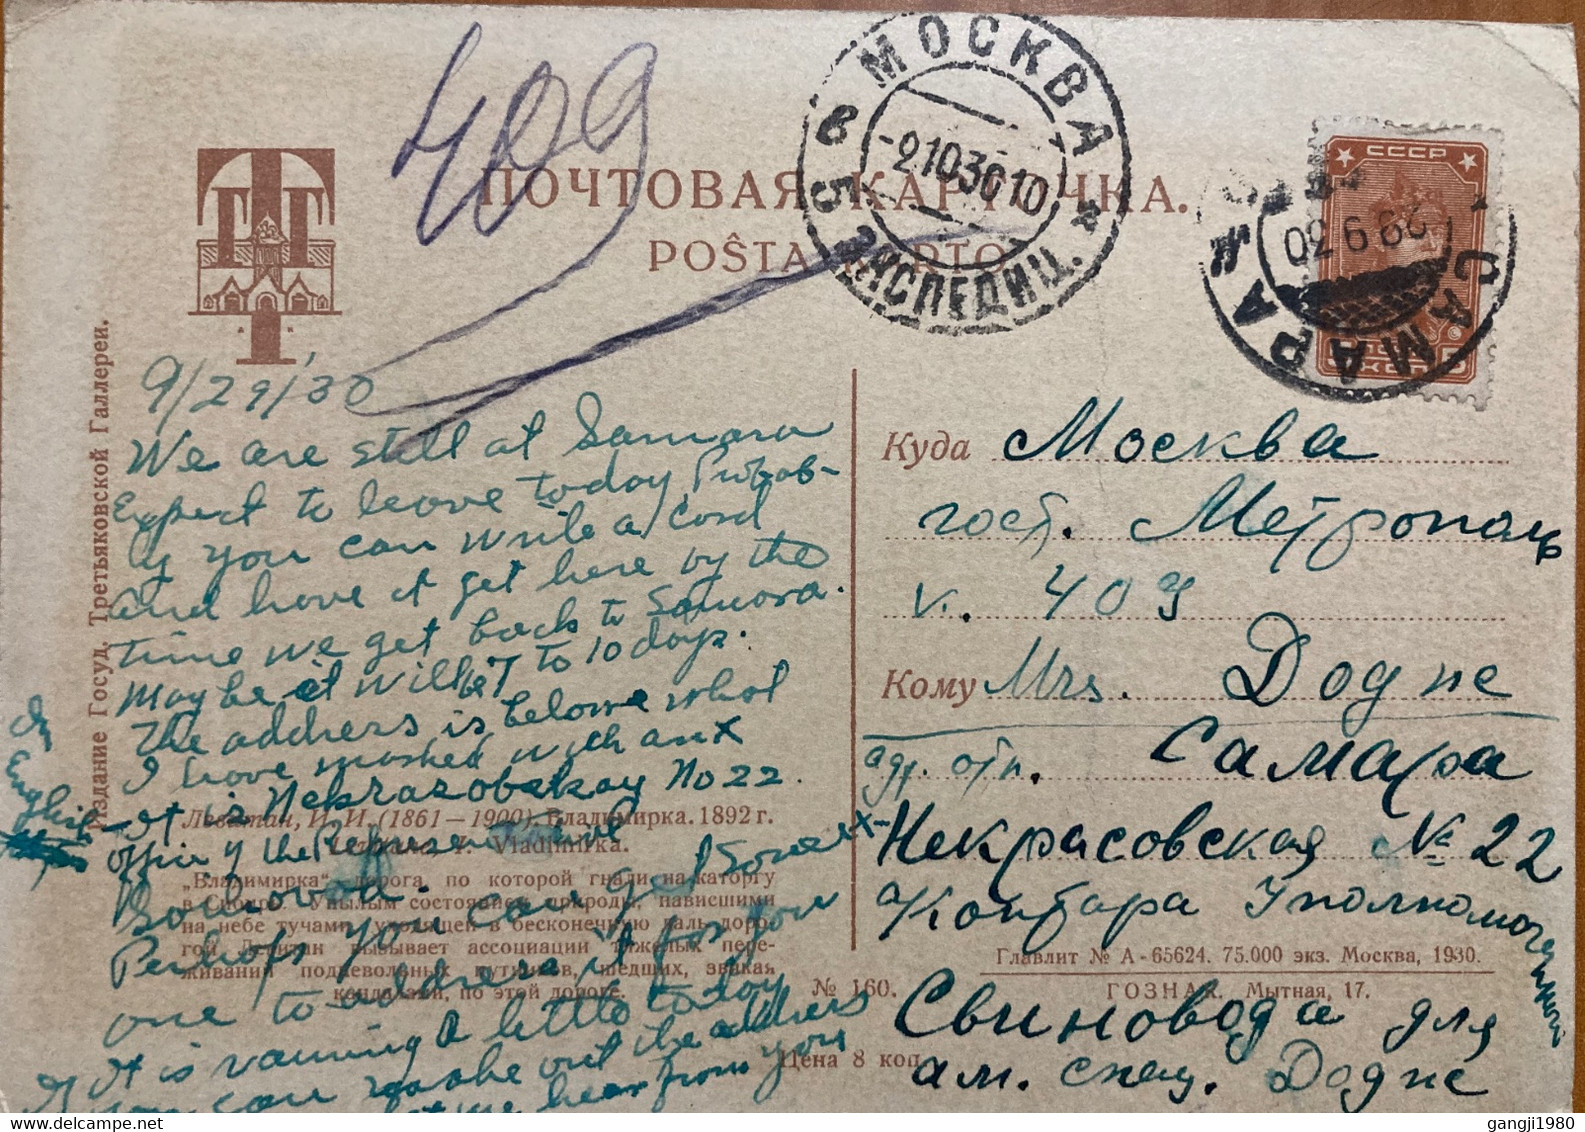 409
МОСКВА
-2103010
в 5 ЭКСПЕДИЦ.
СССР
САМАРА
29 9 30
ПОЧТОВАЯ КАРТОЧКА.
POŜTA KARTO
Издание Госуд. Третьяковской Галлереи.
9/29/'30
We are still at Samara
Expect to leave today Probab-
ly you can write a card
and have it get here by the
time we get back to Samara.
May be it will be 7 to 10 days.
The address is below what
I have marked with an X
In English
It is Nekrazovskay No 22
office of the Representative
Perhaps you can get some
one to address it for you
It is raining a little today
If you can make out the address
let me hear from you
Левитан, И. И. (1861—1900). Владимирка. 1892 г.
Vladimirka.
„Владимирка“, дорога, по которой гнали на каторгу
в Сибирь. Унылым состоянием природы, нависшими
на небе тучами, уходящей в бесконечную даль доро-
гой Левитан вызывает ассоциации тяжелых пере-
живаний подневольных путников, шедших, звякая
кандалами, по этой дороге.
№ 160.
Цена 8 коп.
Куда Москва
гост. Метрополь
v. 409
Кому Mrs. Додже
адр. отп. Самара
X-Некрасовская № 22
Контора Уполномоченный
Главлит № А - 65624. 75.000 экз. Москва, 1930.
ГОЗНАК. Мытная, 17.
Свиновода для
ам. спец. Додже
gangji1980